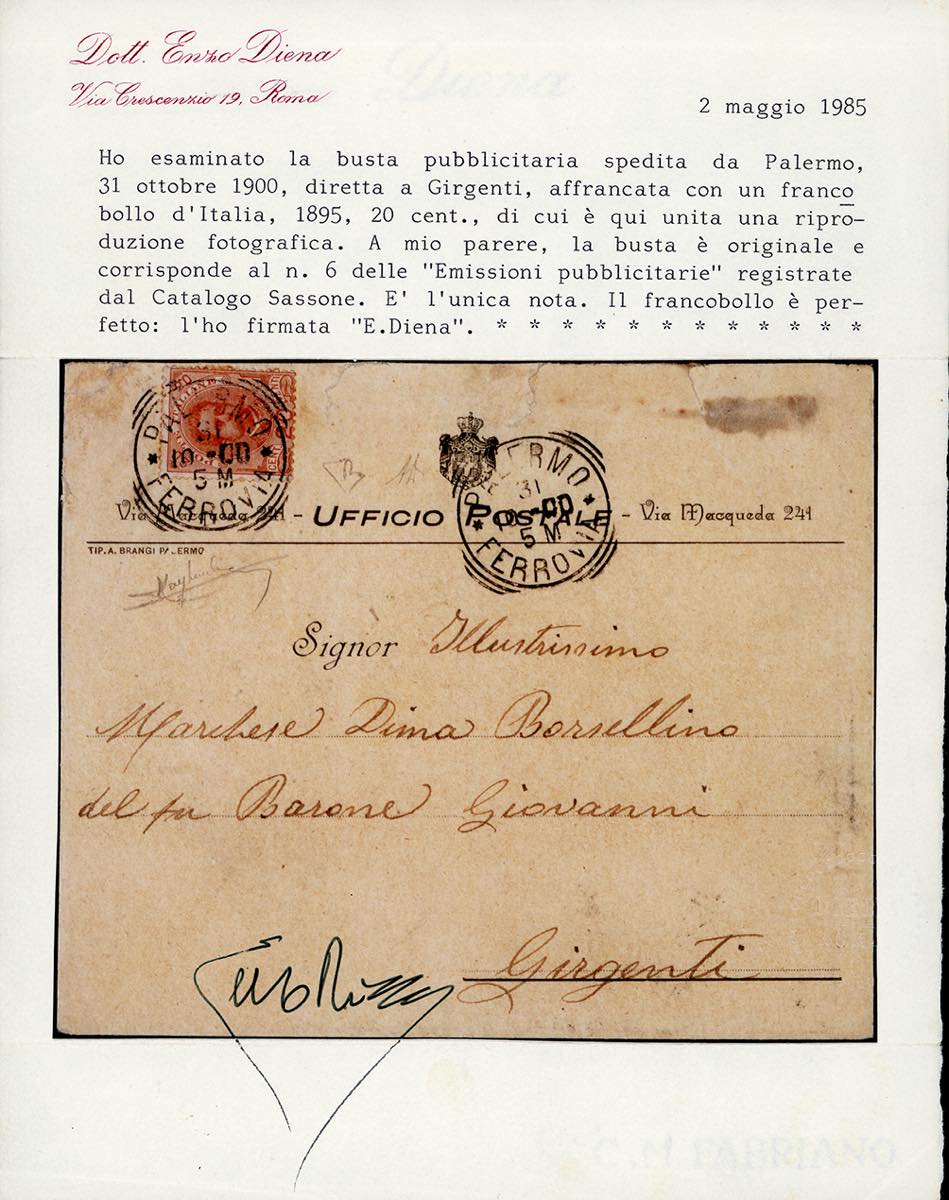 Dott. Enzo Diena
Via Crescenzio 19, Roma
2 maggio 1985
Ho esaminato la busta pubblicitaria spedita da Palermo,
31 ottobre 1900, diretta a Girgenti, affrancata con un franco
bollo d'Italia, 1895, 20 cent., di cui è qui unita una ripro-
duzione fotografica. A mio parere, la busta è originale e
corrisponde al n. 6 delle "Emissioni pubblicitarie" registrate
dal Catalogo Sassone. E' l'unica nota. Il francobollo è per-
fetto: l'ho firmata "E.Diena". * * * * * * * * * * * *
PALERMO
31
10 - 00
5 M
FERROVIA
PALERMO
31
10 - 00
5 M
FERROVIA
Via Macqueda 241 - UFFICIO POSTALE - Via Macqueda 241
TIP. A. BRANGI PALERMO
Signor Illustrissimo
Marchese Dima Borsellino
del fu Barone Giovanni
Girgenti
C.M. FABRIANO